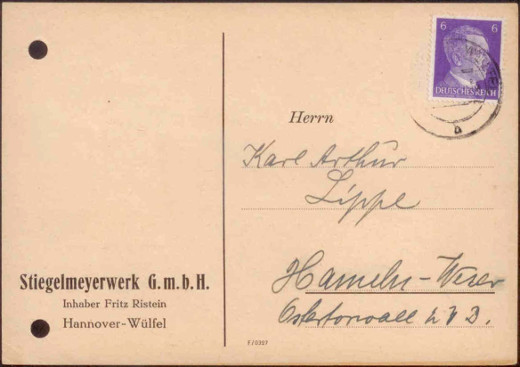 6 6
DEUTSCHES REICH
Herrn
Karl Arthur
Lippe
Hameln-Weser
Ostertorwall
Stiegelmeyerwerk G.m.b.H.
Inhaber Fritz Ristein
Hannover-Wülfel